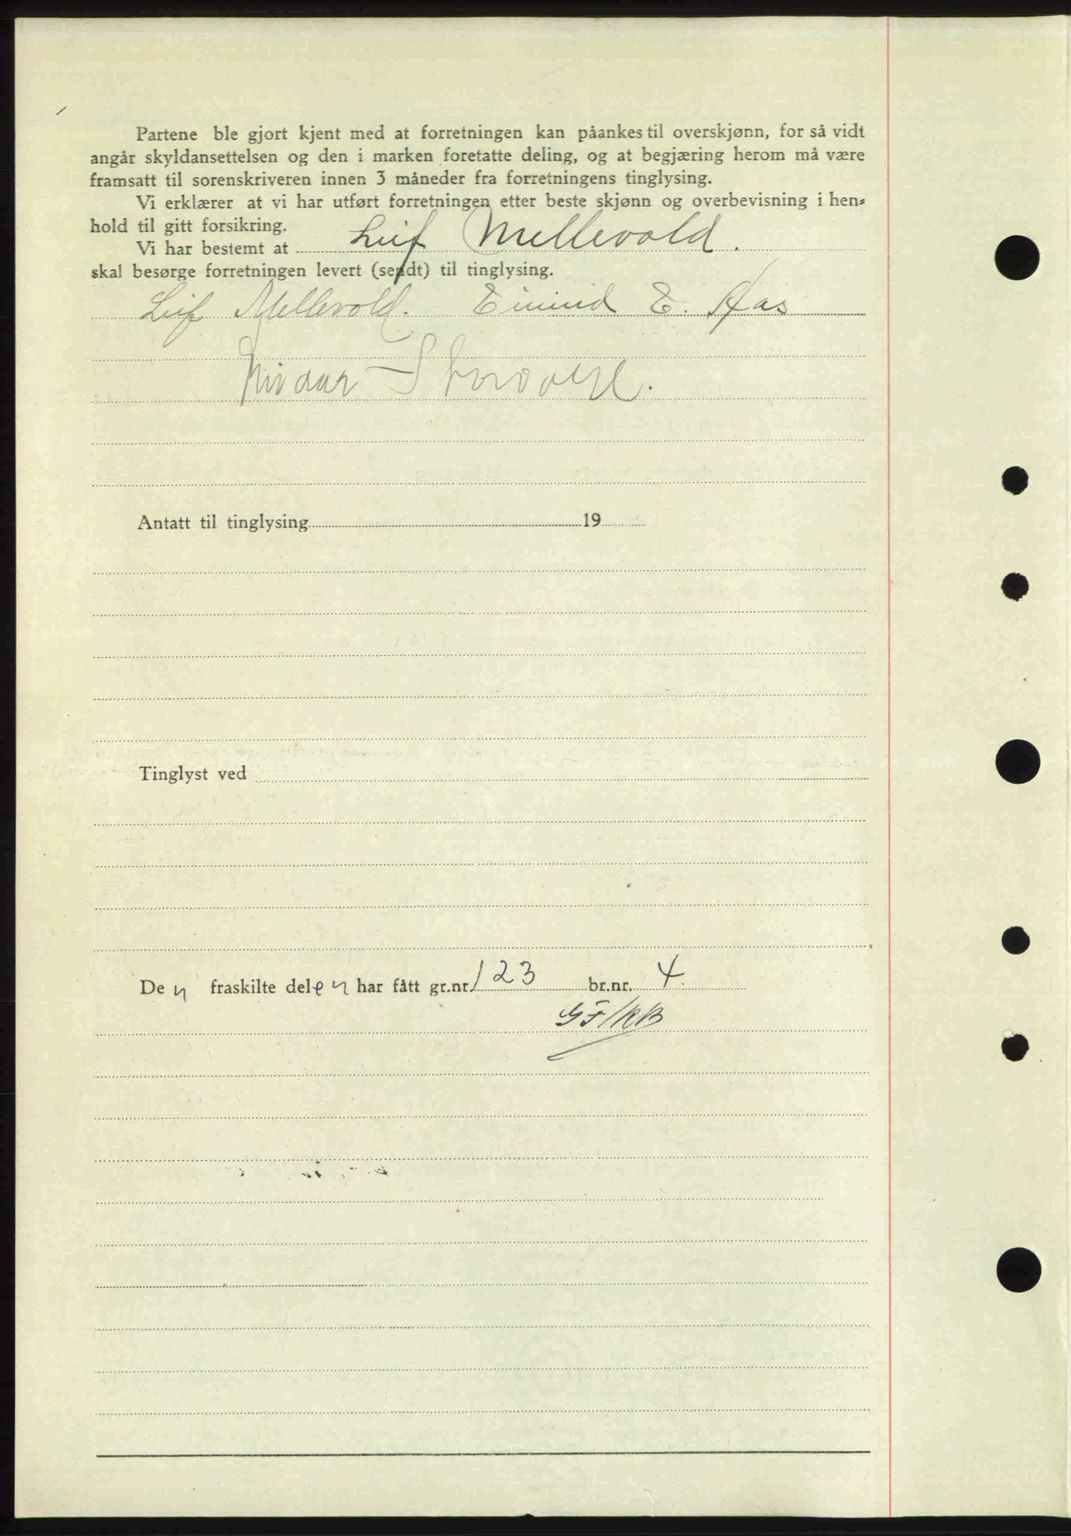 Partene ble gjort kjent med at forretningen kan påankes til overskjønn, for så vidt
angår skyldansettelsen og den i marken foretatte deling, og at begjæring herom må være
framsatt til sorenskriveren innen 3 måneder fra forretningens tinglysing.
Vi erklærer at vi har utført forretningen etter beste skjønn og overbevisning i hen-
hold til gitt forsikring.
Vi har bestemt at Leif Mellevold.
skal besørge forretningen levert (sendt) til tinglysing.
Leif Mellevold. Eivind E. Aas
Antatt til tinglysing 19
Tinglyst ved
Den fraskilte delen har fått gr.nr. 123 br.nr. 4.
GF/RB